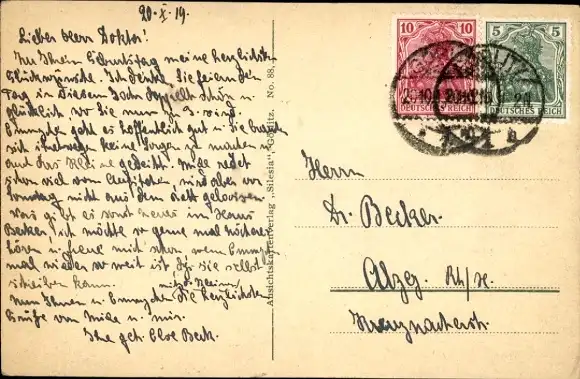 20.X.19.
Lieber Herr Doktor!
Zu Ihrem Geburtstag meine herzlichsten
Glückwünsche. Ich denke Sie feiern den
Tag in diesem Jahr doppelt schön u
glücklich wo Sie nun zu 3 sind.
geht es hoffentlich gut u Sie brauchen
sich ihretwegen keine Sorgen zu machen u
auch das Kleine gedeiht. Mille redet
schon viel vom Aufstehen, wird aber vor
Sonntag nicht aus dem Bett gelassen.
Was gibt es sonst neues im Haus
Becker, ich möchte so gerne mal näheres
hören u freue mich schon wenn
mal wieder so weit ist daß sie selbst
schreiben kann.
Nun Ihnen u die herzlichsten
Grüße von Mille u mir.
Ihre Else Beck.
Ansichtskartenverlag „Silesia“, Görlitz. No. 88.
10 10
DEUTSCHES REICH
5 5
DEUTSCHES REICH
Herrn
Dr. Becker
Alzey Rh/H.
Kreuznacherstr.